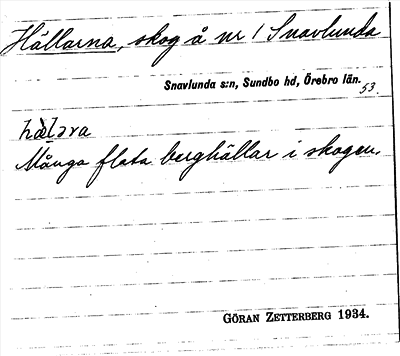 Hällarna, skog å nr 1 Snavlunda
Snavlunda s:n, Sundbo hd, Örebro län.
53.
hä̀ḷəra
Många flata berghällar i skogen.
GÖRAN ZETTERBERG 1934.